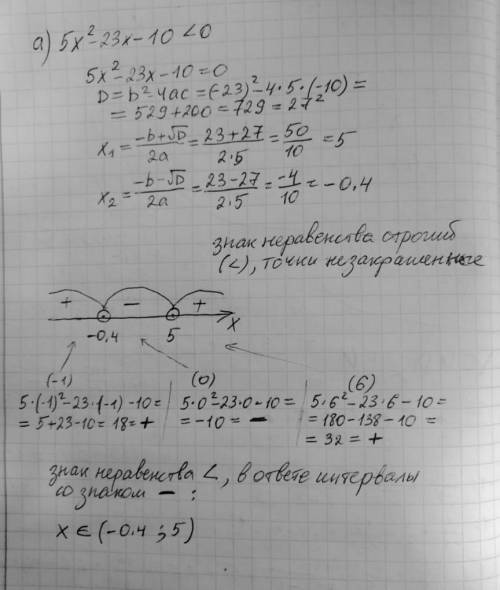 а) 5x²-23x-10 <0
5x²-23x-10=0
D=b²-4ac=(-23)²-4·5·(-10)=
=529+200=729=27²
x₁=(-b+√D)/2a=(23+27)/2·5=50/10=5
x₂=(-b-√D)/2a=(23-27)/2·5=-4/10=-0,4
знак неравенства строгий
(<), точки незакрашенные
+ - +
-0,4 5 x
(-1) (0) (6)
5·(-1)²-23·(-1)-10= 5·0²-23·0-10= 5·6²-23·6-10=
=5+23-10=18=+ =-10= - =180-138-10=
=32=+
знак неравенства <, в ответе интервалы
со знаком - :
x ∈ (-0.4 ; 5)